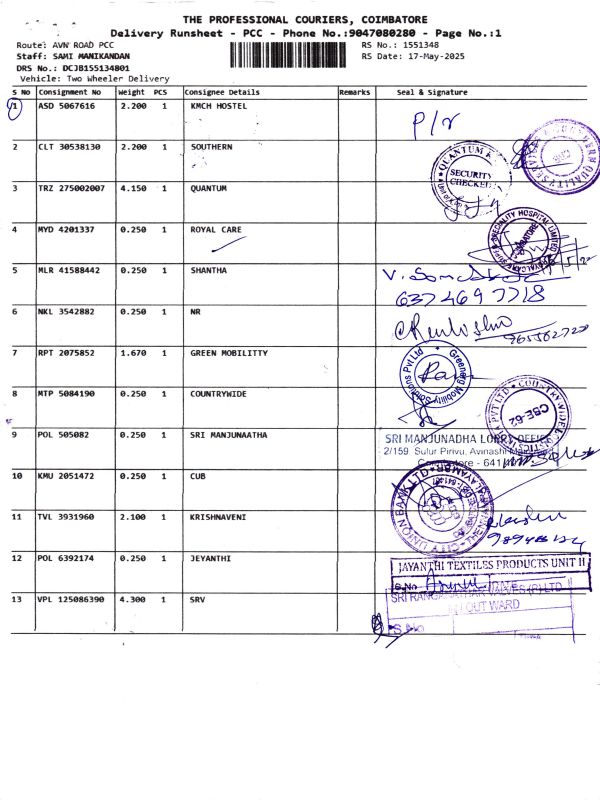 THE PROFESSIONAL COURIERS, COIMBATORE
Delivery Runsheet - PCC - Phone No.:9047080280 - Page No.:1
Route: AVN ROAD PCC
RS No.: 1551348
Staff: SAMI MANIKANDAN
RS Date: 17-May-2025
DRS No.: DCJB155134801
Vehicle: Two Wheeler Delivery
S No Consignment No Weight PCS Consignee Details Remarks Seal & Signature
1 ASD 5067616 2.200 1 KMCH HOSTEL P/r
2 CLT 30538130 2.200 1 SOUTHERN
QUANTUM
SECURITY
CHECKED
3 TRZ 275002007 4.150 1 QUANTUM
4 MYD 4201337 0.250 1 ROYAL CARE
5 MLR 41588442 0.250 1 SHANTHA
6374697718
6 NKL 3542882 0.250 1 NR
7 RPT 2075852 1.670 1 GREEN MOBILITTY
Greenerg Mobility Solutions Pvt Ltd
8 MTP 5084190 0.250 1 COUNTRYWIDE
CBE-62
9 POL 505082 0.250 1 SRI MANJUNAATHA
SRI MANJUNADHA LORRY OFFICE
2/159, Sulur Pirivu, Avinashi
Coimbatore - 641
10 KMU 2051472 0.250 1 CUB
CITY UNION BANK LTD
11 TVL 3931960 2.100 1 KRISHNAVENI
12 POL 6392174 0.250 1 JEYANTHI
JAYANTHI TEXTILES PRODUCTS UNIT II
S.No DATE
13 VPL 125086390 4.300 1 SRV
OUT WARD
S.No